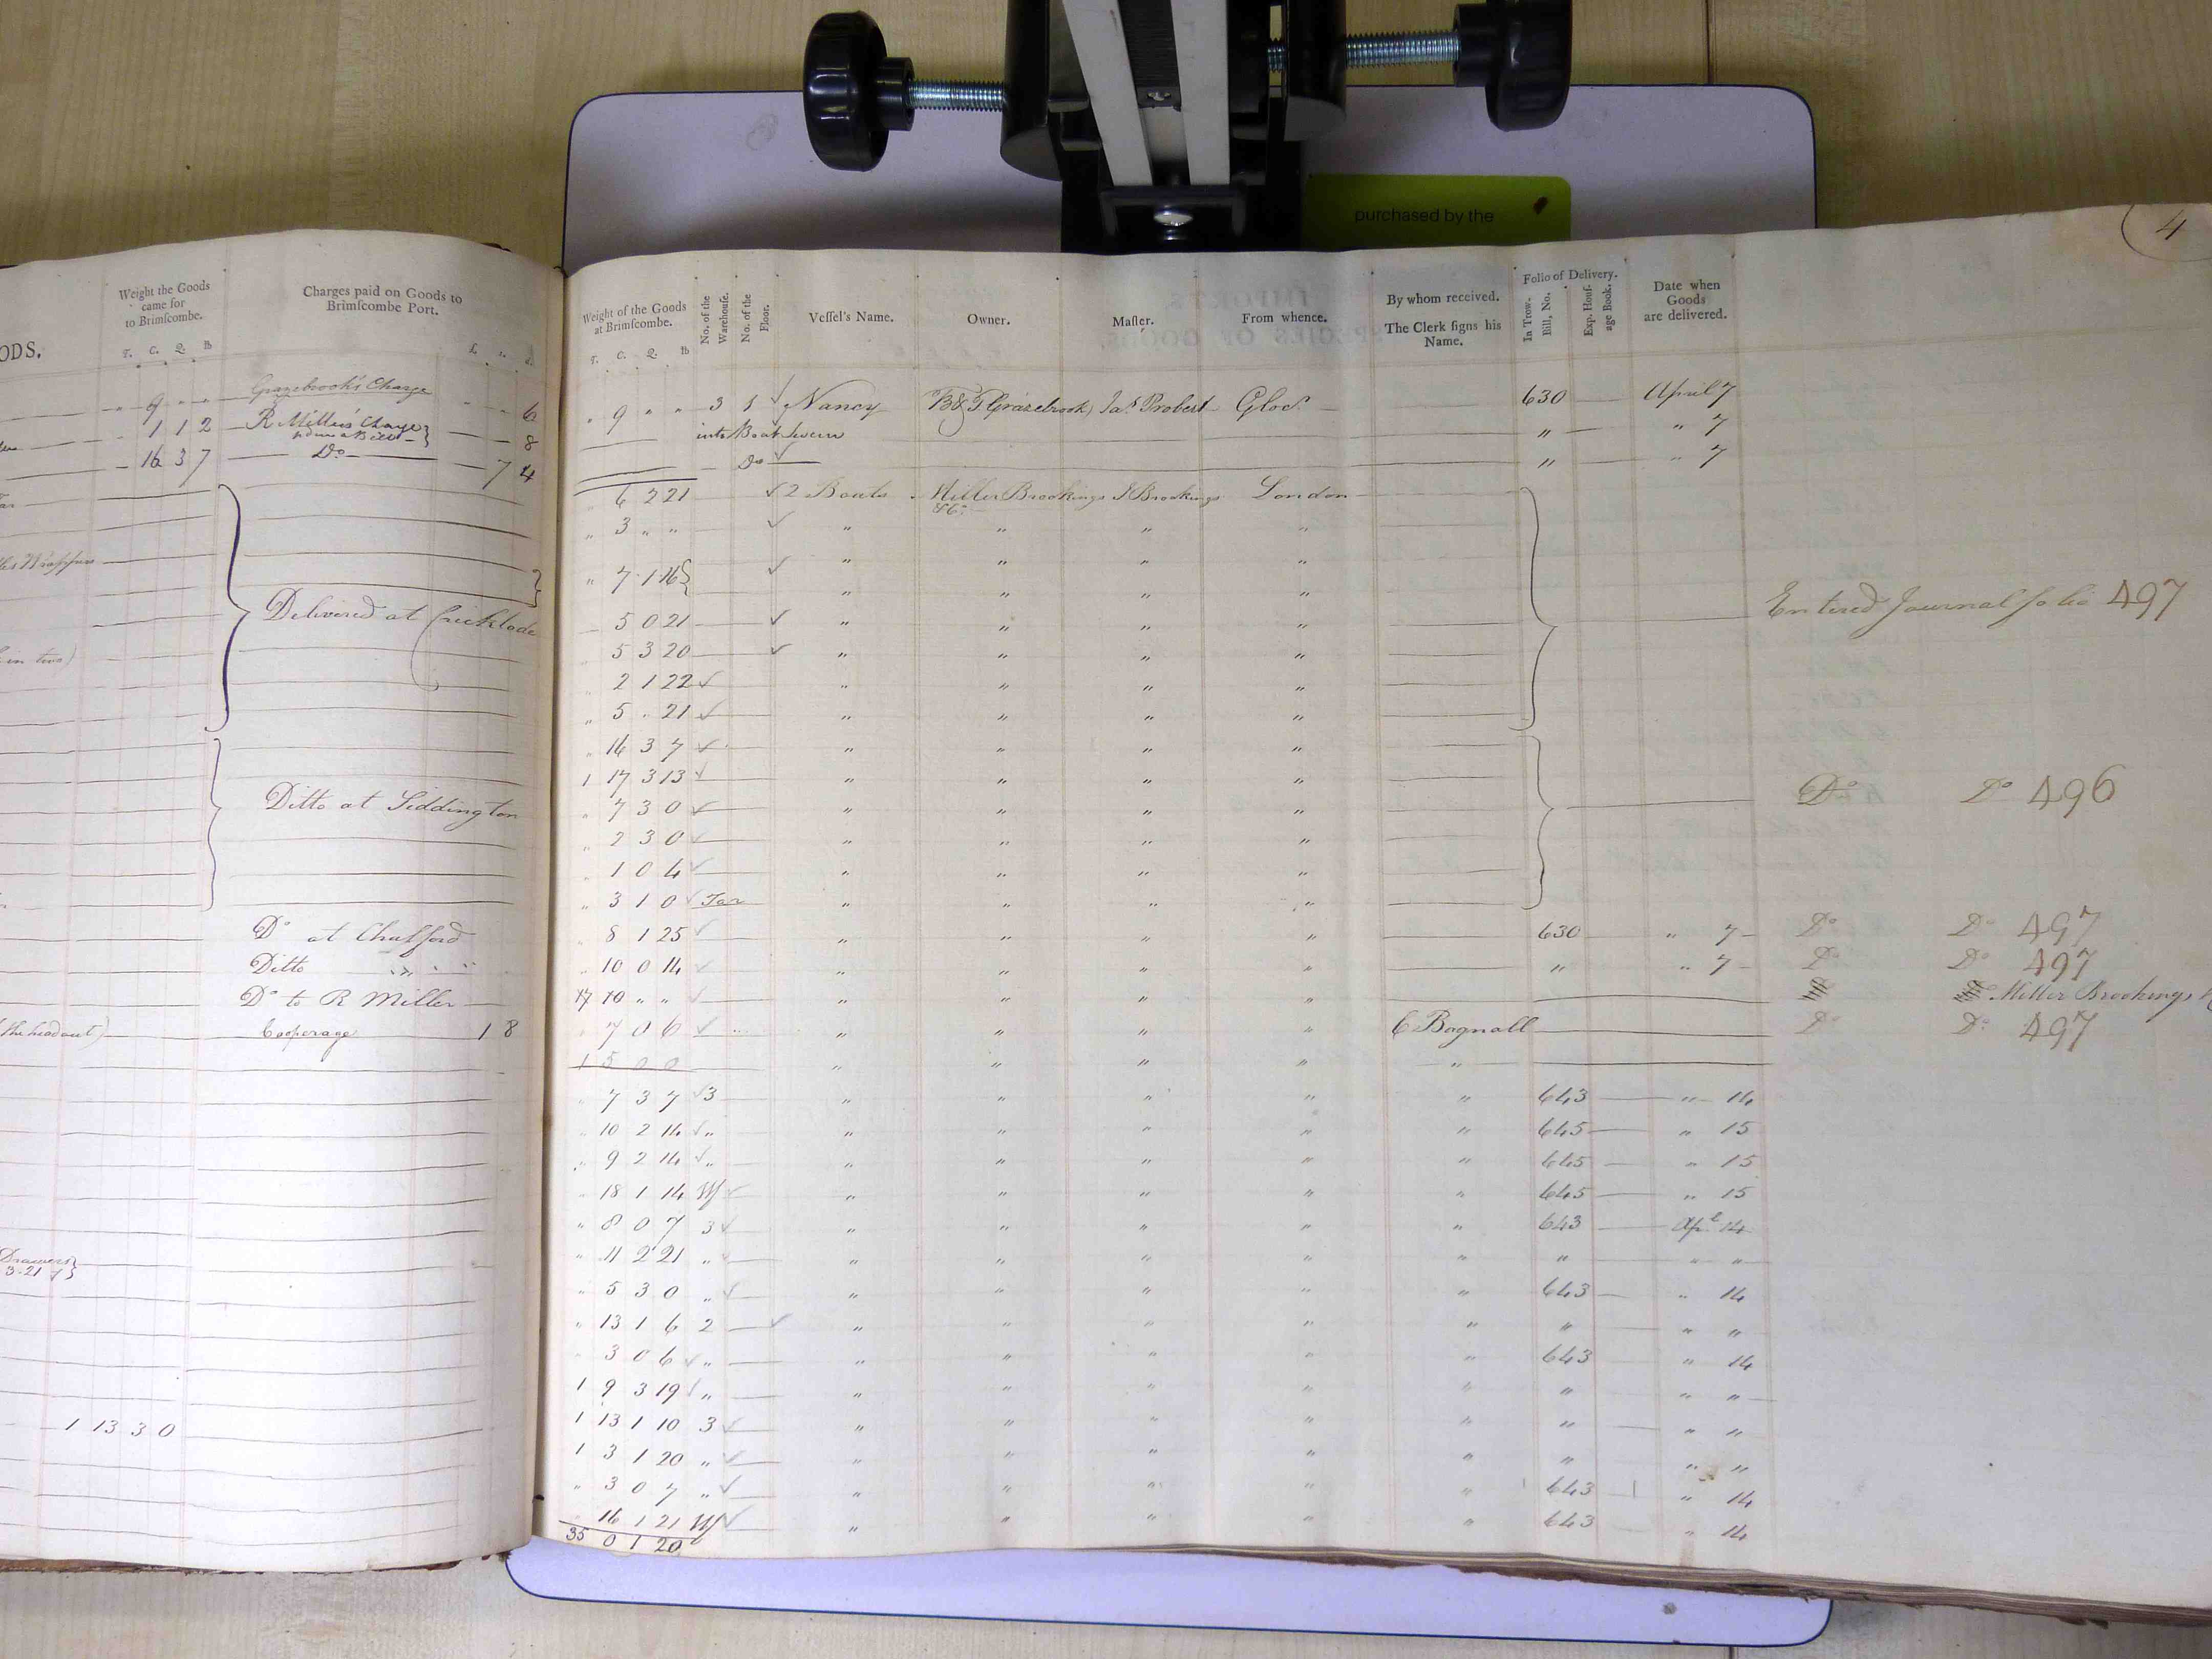 purchased by the
4
ODS.
Weight the Goods
came for
to Brimſcombe.
T. C. Q. lb
Charges paid on Goods to
Brimſcombe Port.
£. s. d.
" 9 " " Grazebrook's Charge " " 6
1 1 2 R Miller's Charge 8
16 3 7 Do 7 4
Delivered at Cricklade
in two)
Ditto at Siddington
Do at Chalford
Ditto " "
Do to R Miller
the head out) Cooperage 1 8
Drawers
3.21
1 13 3 0
Weight of the Goods
at Brimſcombe.
T. C. Q. lb
No. of the
Warehouſe.
No. of the
Floor.
Veſſel's Name.
Owner.
Maſter.
From whence.
By whom received.
The Clerk ſigns his
Name.
Folio of Delivery.
In Trow.
Bill, No.
Exp. Houſ-
age Book.
Date when
Goods
are delivered.
" 9 " " 3 1 ✓ Nancy B & T Grazebrook Jas Probert Glocr 630 April 7
into Boat Severn " " 7
Do ✓ " " 7
6 2 21 ✓ 2 Boats Miller Brookings J Brookings London
&Co
" 3 " " ✓ " " " "
" 7 1 16 ✓ " " " "
" " " "
5 0 21 ✓ " " " "
Entered Journal folio 497
5 3 20 ✓ " " " "
2 1 22 ✓ " " " "
" 5 " 21 ✓ " " " "
" 16 3 7 ✓ " " " "
1 17 3 13 ✓ " " " "
" 7 3 0 ✓ " " " " Do Do 496
" 2 3 0 ✓ " " " "
" 1 0 4 ✓ " " " "
" 3 1 0 ✓ Tar " " " "
" 8 1 25 ✓ " " " " 630 " 7 Do Do 497
" 10 0 14 ✓ " " " " " " 7 Do Do 497
17 10 " " ✓ " " " " Miller Brookings
" 7 0 6 ✓ " " " " C Bagnall Do Do 497
1 5 0 0 " " " " "
" 7 3 7 ✓ 3 " " " " " 643 " 14
" 10 2 14 ✓ " " " " " " 645 " 15
" 9 2 14 ✓ " " " " " " 645 " 15
" 18 1 14 Wf ✓ " " " " " 645 " 15
" 8 0 7 3 ✓ " " " " " 643 Apl 14
" 11 2 21 " ✓ " " " " " " " "
" 5 3 0 " ✓ " " " " " 643 " 14
" 13 1 6 2 ✓ " " " " " " " "
" 3 0 6 ✓ " " " " " " 643 " 14
1 9 3 19 ✓ " " " " " " " " "
1 13 1 10 3 ✓ " " " " " " " "
1 3 1 20 " ✓ " " " " " " " "
" 3 0 7 " ✓ " " " " " 643 " 14
" 16 1 21 Wf ✓ " " " " " 643 " 14
35 0 1 20